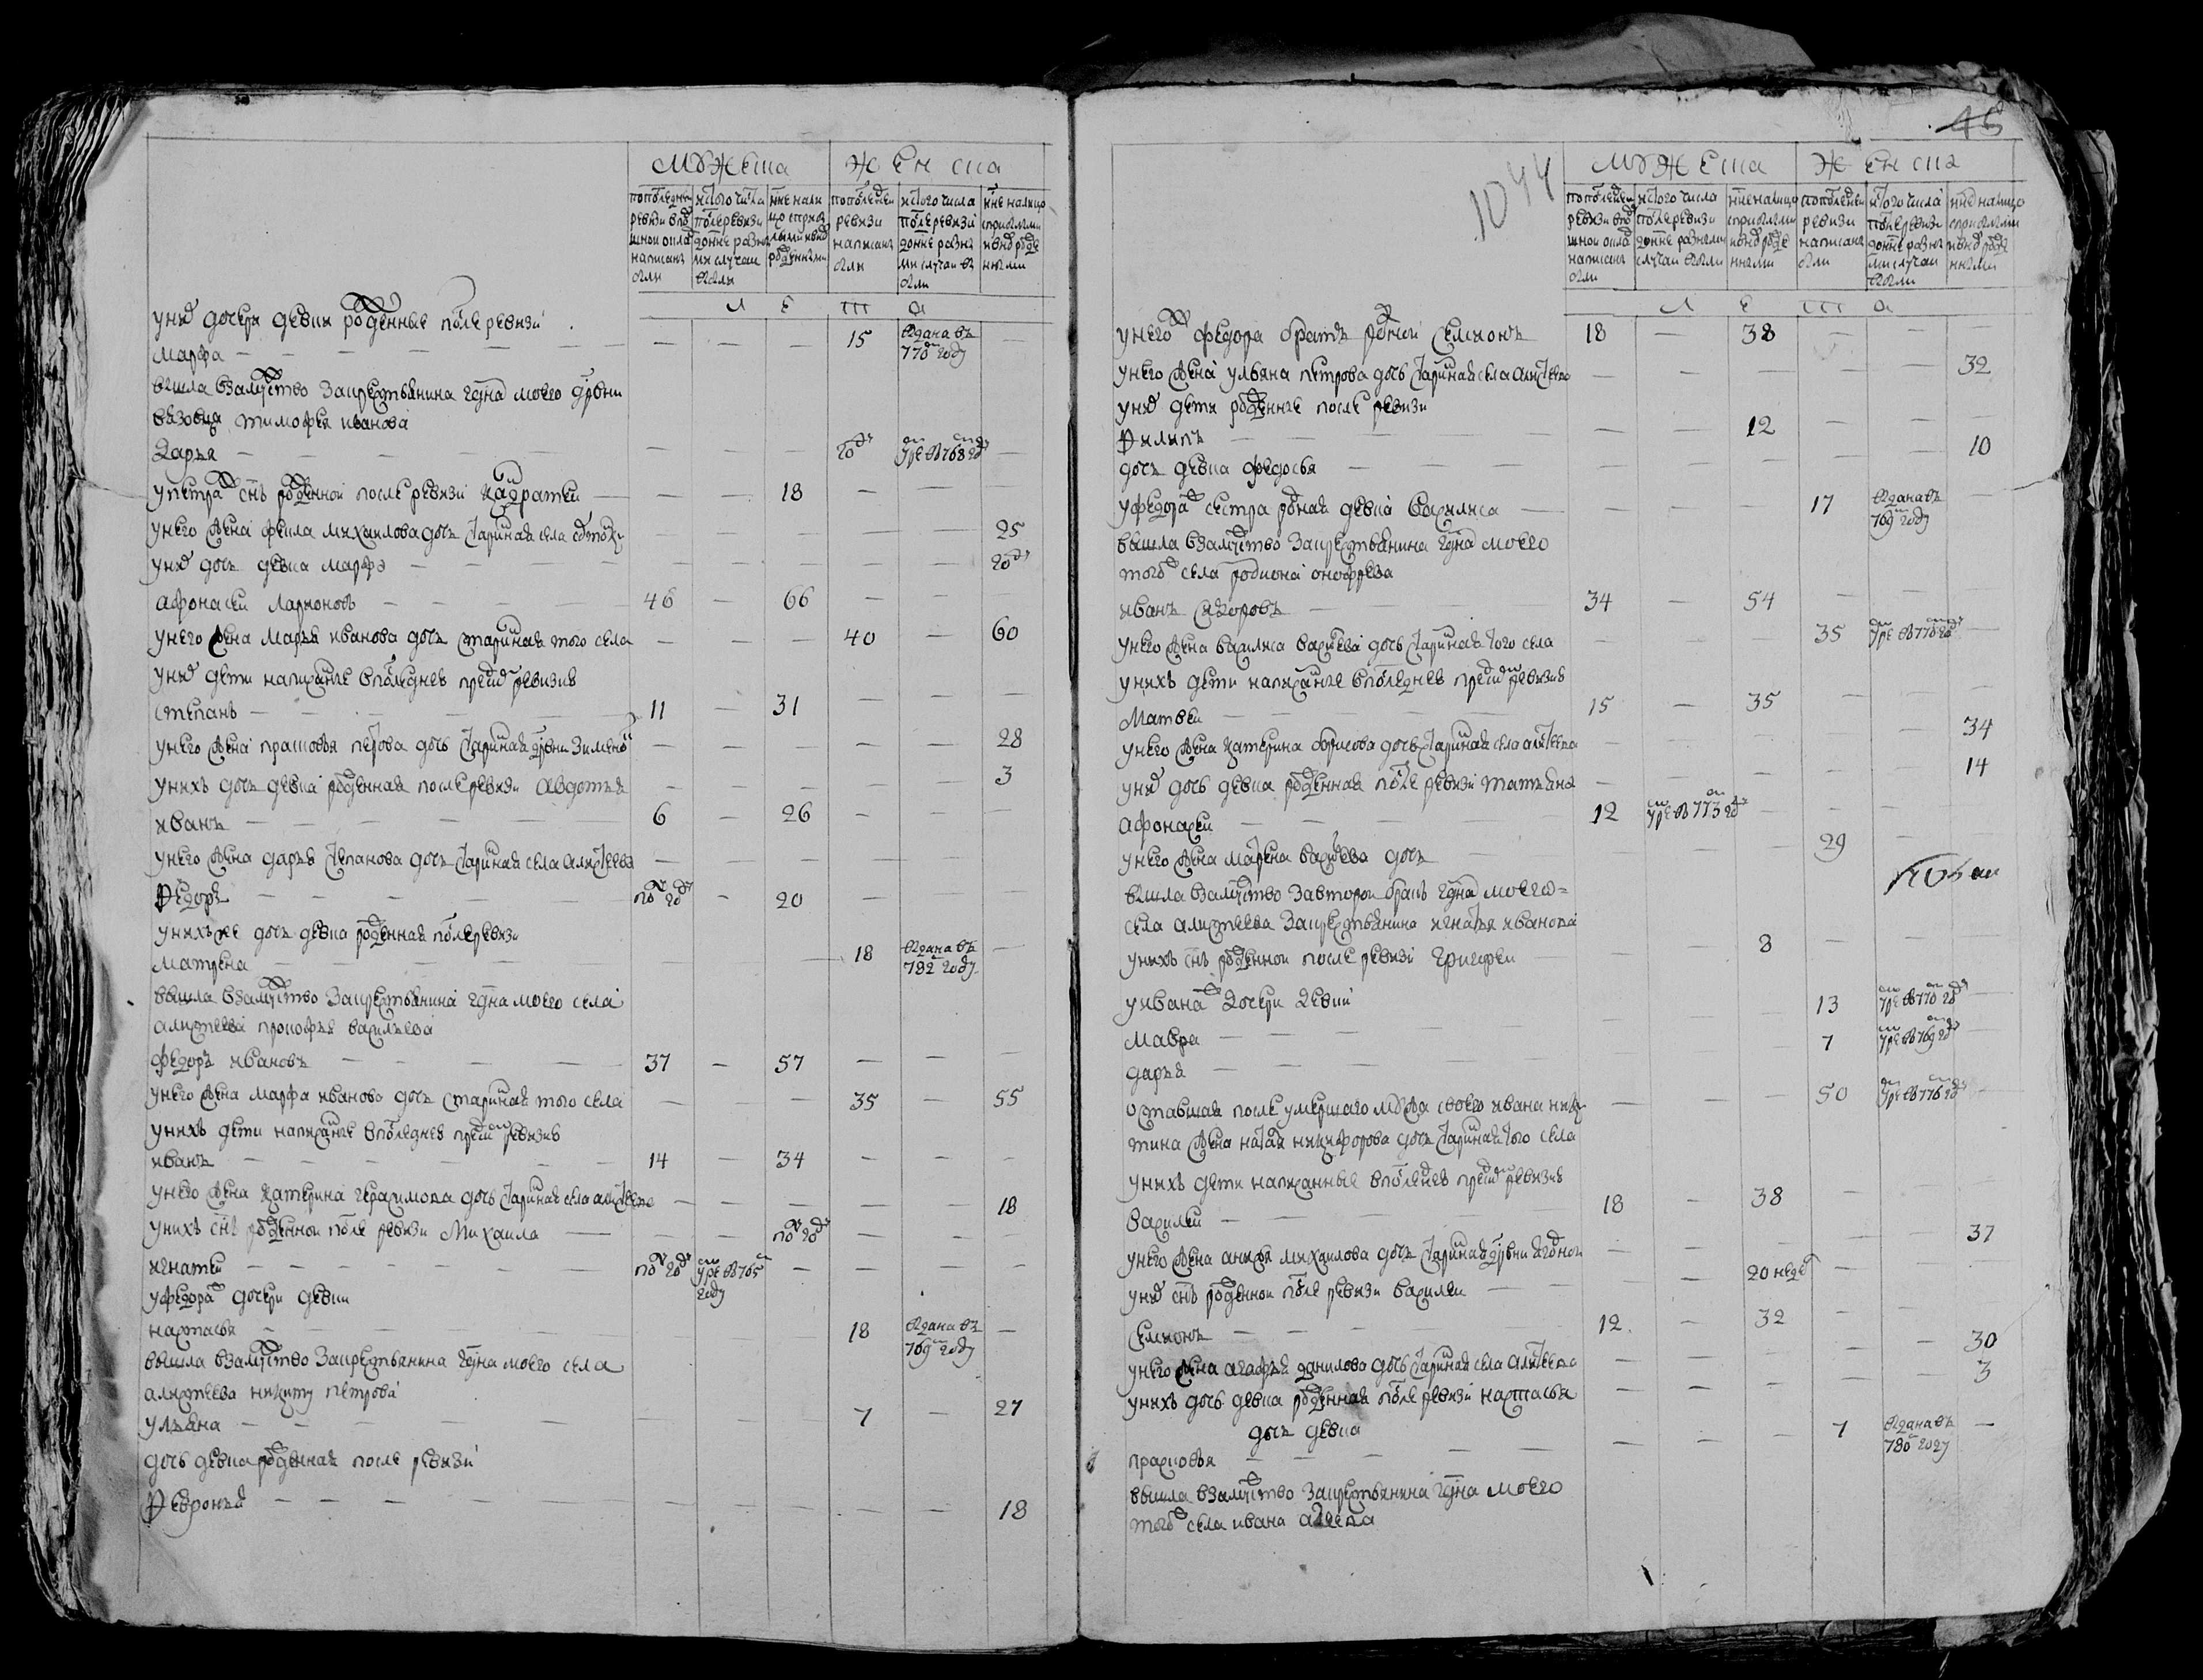 Мужеска Женска
по последней ревизии в подушной оклад написаны были
ис того числа после ревизии до ныне разными случаи выбыли
ныне на лицо с прибылыми и вновь рожденными
по последней ревизии написаны были
ис того числа после ревизии до ныне разными случаи выбыли
ныне на лицо с прибылыми и вновь рожденными
л е т а
у них дочери девки рожденные после ревизи
Марфа — — — 15 выдана въ 770м году —
вышла взамужство за крестьянина г͠дна моего дрвни
вязовки тимофея иванова
Дарья — — — году уме: в 768 году —
у петра ж снъ рожденной после ревизи кадратеи — — 18 — — —
у него жена фекла михаилова дочь старинная села — — — — — 25
у них дочь девка марфа — — — — — году
афонасеи ларионовъ 46 — 66 — —
у него жена марья иванова дочь старинная того села — — — 40 — 60
у них дети написанные в последнею пред сею ревизию
степанъ — 11 — 31 — — —
у него жена прасковья петрова дочь старинная дрвни — — — — — 28
у них дочь девка рожденная после ревизи авдотья — — — — — 3
иванъ — 6 — 26 — — —
у него жена дарья степанова дочь старинная села — — — — —
Федоръ — полу году — 20 — — —
у них же дочь девка рожденная после ревизи
матрена — — — — 18 выдана въ 782 году —
вышла взамужство за крестьянина г͠дна моего села
прокофья васильева
федоръ ивановъ — 37 — 57 — — —
у него жена марфа иванова дочь старинная того села — — — 35 — 55
у них дети написанные в последнею пред сею ревизию
иванъ — 14 — 34 — — —
у него жена катерина герасимова дочь старинная села — — — — — 18
у них снъ рожденнои после ревизи михаила — — — полу году — — —
игнатеи — полу году умре в 765 году — — — —
у федора ж дочери девки
настасья — — — — 18 выдана въ 769 году —
вышла взамужство за крестьянина г͠дна моего села
никиту петрова
ульяна — — — — 7 — 27
дочь девка рожденная после ревизи
Февронья — — — — — — 18
45
1044
Мужеска Женска
по последней ревизии в подушной оклад написаны были
ис того числа после ревизии до ныне разными случаи выбыли
ныне на лицо с прибылыми и вновь рожденными
по последней ревизии написаны были
ис того числа после ревизии до ныне разными случаи выбыли
ныне на лицо с прибылыми и вновь рожденными
л е т а
у него ж федора братъ родной семионъ 18 — 38 — — —
у него жена ульяна петрова дочь старинная села — — — — — 32
у них дети рожденные после ревизи
Филипъ — — — 12 — —
дочь девка федосья — — — — — — 10
у федора ж сестра родная девка василиса — — — 17 выдана въ 769 году —
вышла взамужство за крестьянина г͠дна моего
того ж села родиона онофреева
иванъ 34 — 54 — —
у него жена василиса васильева дочь старинная того села — — — 35 умре в 770 году —
у них дети написанные в последнею пред сею ревизию
Матвеи — 15 — 35 — — —
у него жена катерина борисова дочь старинная села — — — — — 34
у них дочь девка рожденная после ревизи татьяна — — — — — 14
афонасеи — 12 умре в 773 году — — —
у него жена васильева дочь — — — — 29 —
вышла взамужство за второи бракъ г͠дна моего
села за крестьянина игнатья иванова
у них снъ рожденнои после ревизи григореи — — 8 — — —
у ивана ж дочери девки
мавра — — — 13 умре в 770 году —
дарья — — — 7 умре в 769 году —
оставшая после умершаго мужа своего ивана — — — 50 умре в 776 году —
жена никифорова дочь старинная того села
у них дети написанные в последнею пред сею ревизию
василеи — 18 — 38 — —
у него жена михаилова дочь старинная дрвни — — — — — 37
у них снъ рожденнои после ревизи василеи — — — 20 недел — —
семионъ — 12 — 32 — —
у него жена агафья данилова дочь старинная села — — — — — 30
у них дочь девка рожденная после ревизи настасья — — — — — 3
дочь девка
прасковья — — — 7 выдана въ 780 году —
вышла взамужство за крестьянина г͠дна моего
того ж села ивана